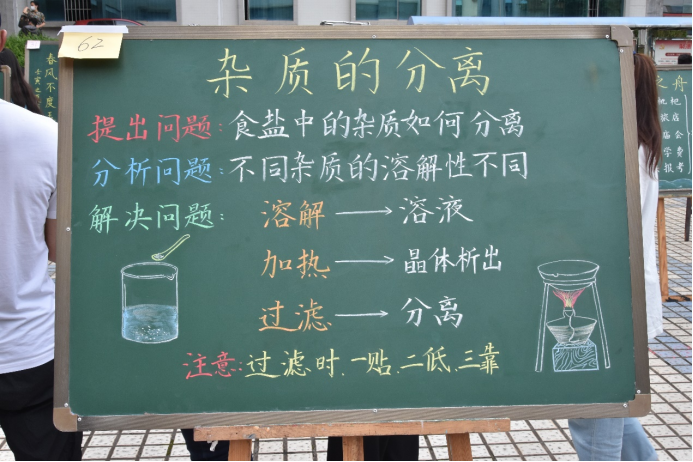 62
杂质的分离
提出问题：食盐中的杂质如何分离
分析问题：不同杂质的溶解性不同
解决问题：溶解→溶液
加热→晶体析出
过滤→分离
注意：过滤时.一贴.二低.三靠
春风不度玉